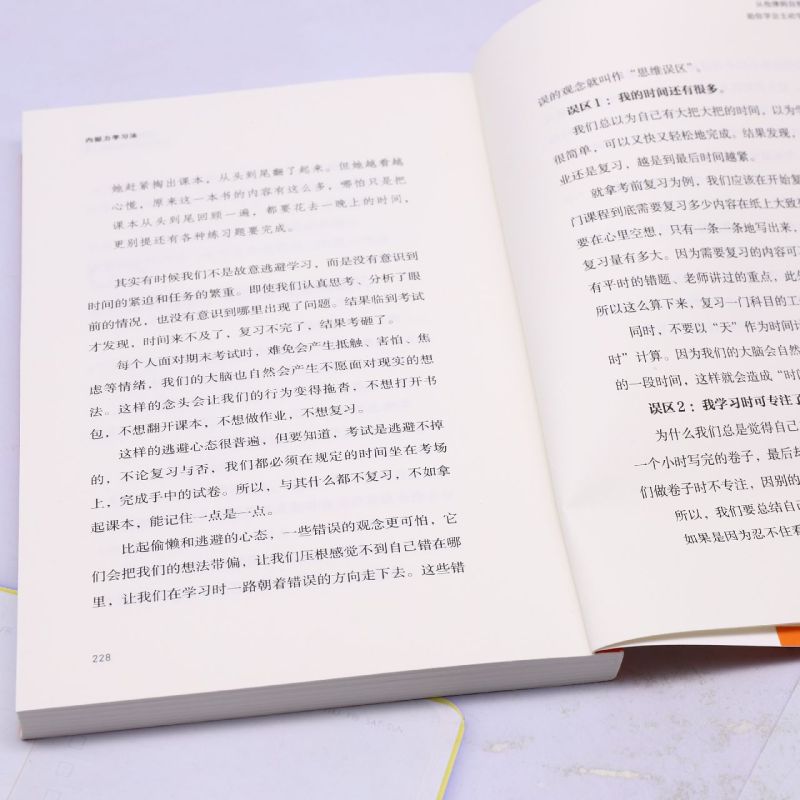 内驱力学习法
她赶紧掏出课本，从头到尾翻了起来。但她越看越
心慌，原来这一本书的内容有这么多，哪怕只是把
课本从头到尾回顾一遍，都要花去一晚上的时间，
更别提还有各种练习题要完成。
其实有时候我们不是故意逃避学习，而是没有意识到
时间的紧迫和任务的繁重。即使我们认真思考、分析了眼
前的情况，也没有意识到哪里出现了问题。结果临到考试
才发现，时间来不及了，复习不完了，结果考砸了。
每个人面对期末考试时，难免会产生抵触、害怕、焦
虑等情绪，我们的大脑也自然会产生不愿面对现实的想
法。这样的念头会让我们的行为变得拖沓，不想打开书
包，不想翻开课本，不想做作业，不想复习。
这样的逃避心态很普遍，但要知道，考试是逃避不掉
的，不论复习与否，我们都必须在规定的时间坐在考场
上，完成手中的试卷。所以，与其什么都不复习，不如拿
起课本，能记住一点是一点。
比起偷懒和逃避的心态，一些错误的观念更可怕，它
们会把我们的想法带偏，让我们压根感觉不到自己错在哪
里，让我们在学习时一路朝着错误的方向走下去。这些错
228
误的观念就叫作“思维误区”。
误区1：我的时间还有很多。
我们总以为自己有大把大把的时间，以为
很简单，可以又快又轻松地完成。结果发现，
业还是复习，越是到最后时间越紧。
就拿考前复习为例，我们应该在开始复
门课程到底需要复习多少内容在纸上大致
要在心里空想，只有一条一条地写出来，
复习量有多大。因为需要复习的内容可
有平时的错题、老师讲过的重点，此
所以这么算下来，复习一门科目的工
同时，不要以“天”作为时间计
时”计算。因为我们的大脑会自然
的一段时间，这样就会造成“时
误区2：我学习时可专注了
为什么我们总是觉得自己
一个小时写完的卷子，最后却
们做卷子时不专注，因别的
所以，我们要总结自己
如果是因为忍不住看